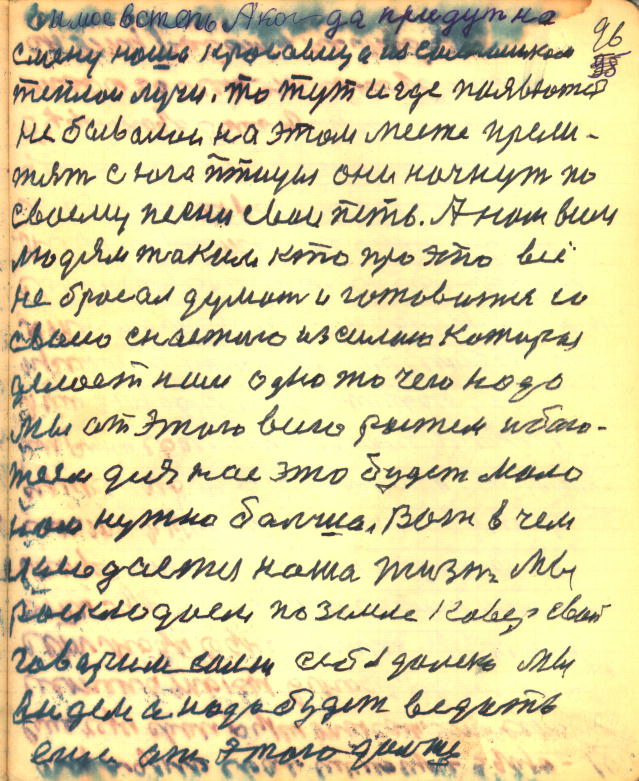 А когда придут на
96
смену наша красавица из солнышком
теплои лучи. то тут и где появются
не бывалои на этом месте приле-
тят с юга птицы они начнут по
своему песни свои петь. А нам всим
людям таким кто про это всё
не бросал думат и готовится со
своею снастюю из силаю которая
делает нам одно то чего надо
Мы от этого всего ростем и бога-
теем для нас это будет мало
нам нужно балша. Вот в чем
складается наша жизнь Мы
раскладаем по земле ковер свой
говарим сами себя далеко Мы
видем а надо будет ведать
еще от этого далше